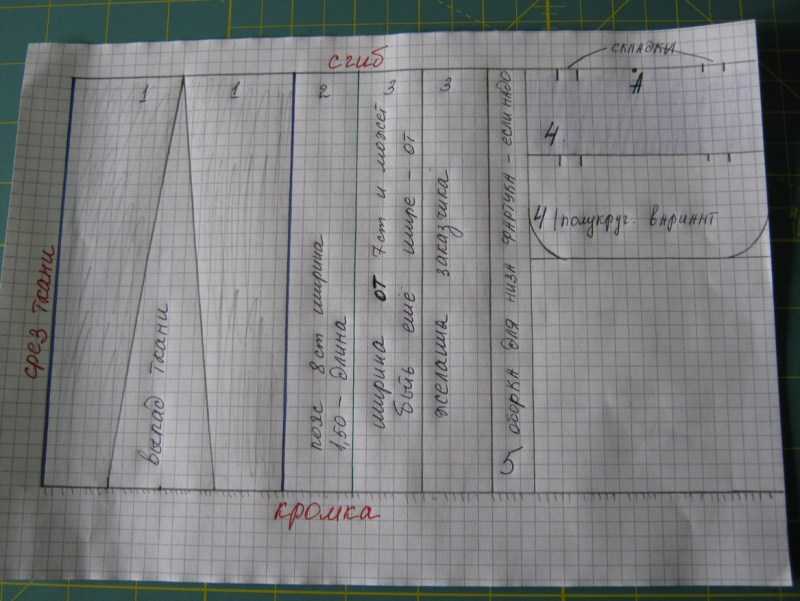 сгиб
складки
A
1
1
2
3
3
4
4 полукруг. вариант
срез ткани
выпад ткани
пояс 8 cm ширина
1,50 - длина
ширина от 7 cm и может
быть ещё шире - от
желания заказчика
5 оборка для низа фартука - если надо
кромка